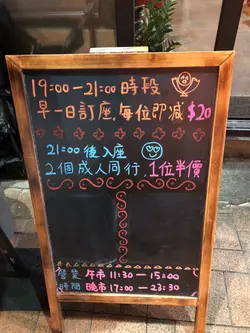 19:00-21:00 時段
早一日訂座,每位即減 $20
21:00 後入座
2個成人同行,1位半價
營業 午市 11:30-15:00
時間 晚市 17:00-23:30